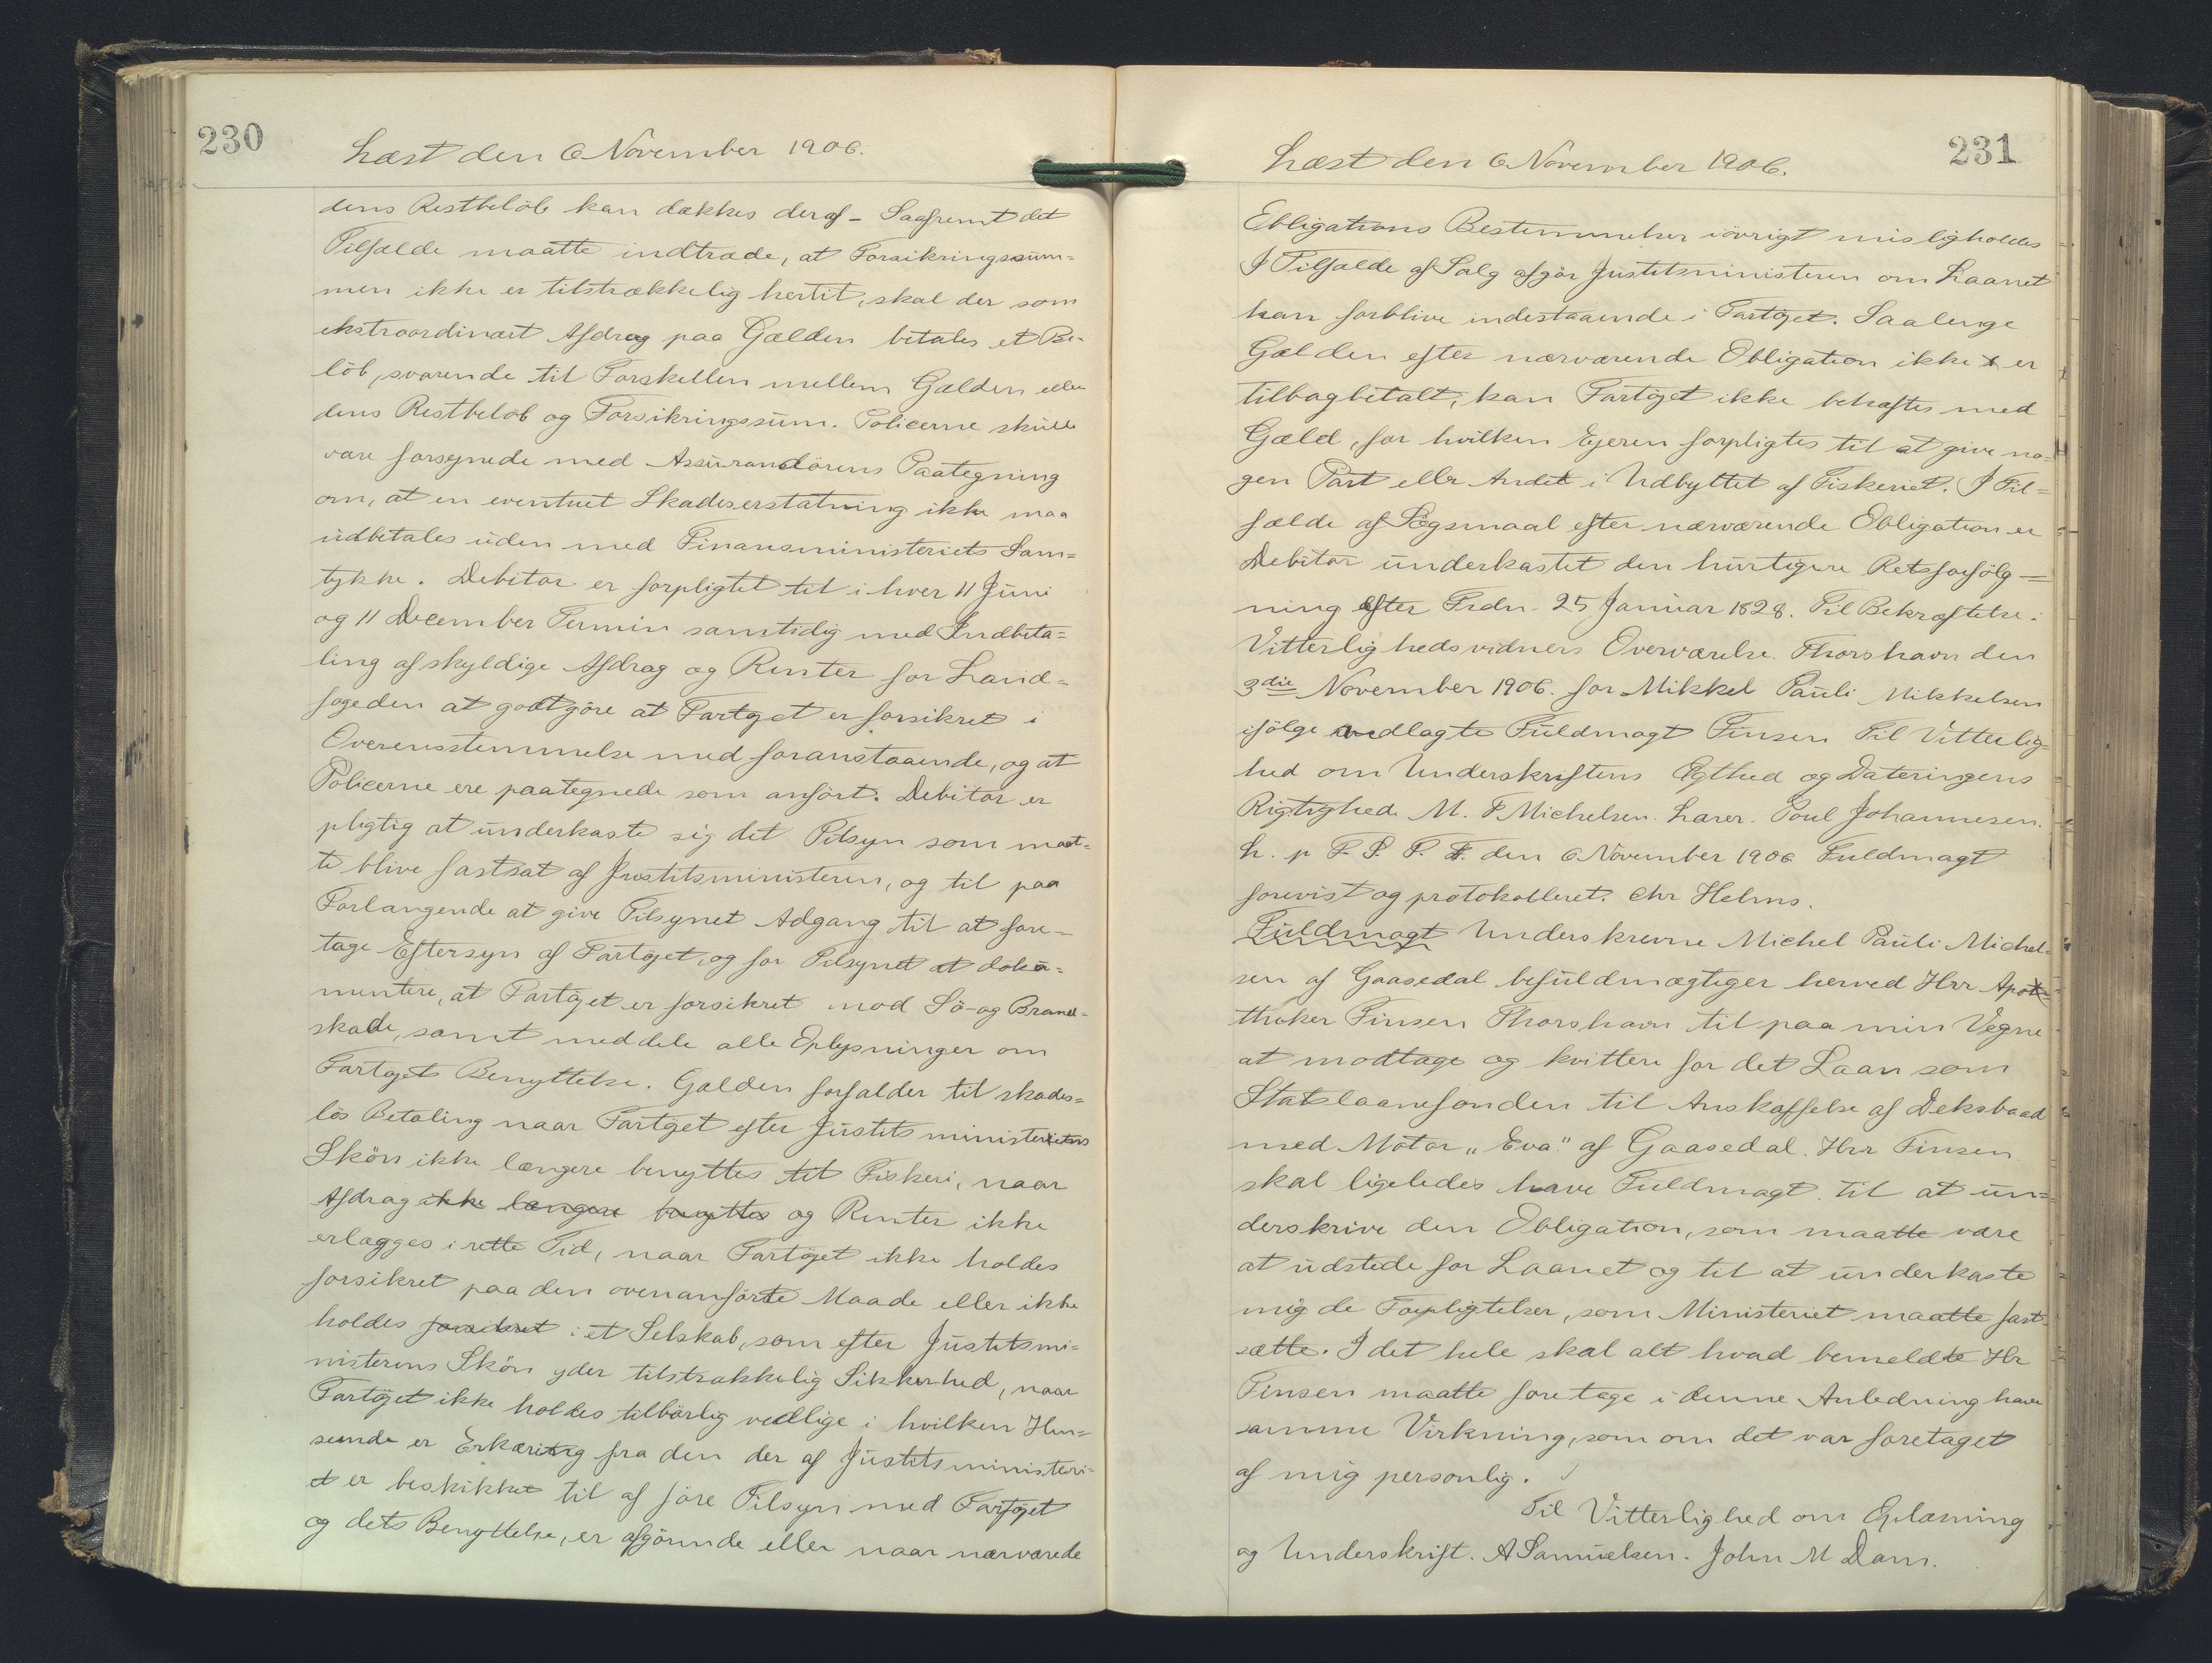 230
Læst den 6 November 1906.
dens Restbelöb kan dækkes deraf - Saafremt det
Tilfælde maatte indtræde, at Forsikringssum=
men ikke er tilstrækkelig hertil, skal der som
ekstraordinært Afdrag paa Gælden betales et Be-
löb, svarende til Forskellen mellem Gælden eller
dens Restbelöb og Forsikringssum. Policerne skulle
være forsynede med Assurandörens Paategning
om, at en eventuel Skadeserstatning ikke maa
udbetales uden med Finansministeriets Sam=
tykke. Debitor er forpligtet til i hver 11 Juni
og 11 December Termin samtidig med Indbeta=
ling af skyldige Afdrag og Renter for Land=
fogeden at godtgöre at Fartöjet er forsikret i
Overensstemmelse med foranstaaende, og at
Policerne ere paategnede som anfört. Debitor er
pligtig at underkaste sig det Tilsyn som maat=
te blive fastsat af Justitsministeren, og til paa
Forlangende at give Tilsynet Adgang til at fore-
tage Eftersyn af Fartöjet, og for Tilsynet at doku=
mentere, at Fartöjet er forsikret mod Sö- og Brand=
skade, samt meddele alle Oplysninger om
Fartöjets Benyttelse. Gælden forfalder til skades=
lös Betaling naar Fartöjet efter Justitsministeriets
Skön ikke længere benyttes til Fiskeri, naar
Afdrag ikke længere benyttes og Renter ikke
erlægges i rette Tid, naar Fartöjet ikke holdes
forsikret paa den ovenanförte Maade eller ikke
holdes forsikret i et Selskab, som efter Justitsmi=
nisterens Skön yder tilstrækkelig Sikkerhed, naar
Fartöjet ikke holdes tilbörlig vedlige i hvilken Hen=
seende er Erkæring fra den der af Justitsministeri=
et er beskikket til af före Tilsyn med Fartöjet
og dets Benyttelse, er afgörende eller naar nærværede
231
Læst den 6 November 1906.
Obligations Bestemmelser iövrigt misligholdes
I Tilfælde af Salg afgör Justitsministeren om Laanet
kan forblive indestaaende i Fartöjet. Saalenge
Gælden efter nærværende Obligation ikke er
tilbagbetalt, kan Fartöjet ikke behæftes med
Gæld, for hvilken Ejeren forpligtes til at give no=
gen Part eller Andel i Udbyttet af Fiskeriet. I Til=
fælde af Sögsmaal efter nærværende Obligation er
Debitor underkastet den hurtigere Retsforfölg=
ning efter Frdn. 25 Januar 1828. Til Bekræftelse i
Vitterlighedsvidners Overværelse. Thorshavn den
3die November 1906. for Mikkel Pauli Mikkelsen
ifölge vedlagte Fuldmagt Finsen Til Vitterlig=
hed om Underskriftens Ægthed og Dateringens
Rigtighed M. F Michelsen. Lærer. Poul Johannesen.
L. p F. P. F. F. den 6 November 1906 Fuldmagt
forevist og protokolleret. Chr Helms.
Fuldmagt Underskrevne Michel Pauli Michel=
sen af Gaasedal befuldmægtiger herved Hrr Apot=
theker Finsen Thorshavn til paa min Vegne
at modtage og kvittere for det Laan som
Statslaanefonden til Anskaffelse af Deksbaad
med Motor „Eva" af Gaasedal. Hrr Finsen
skal ligeledes have Fuldmagt til at un=
derskrive den Obligation, som maatte være
at udstede for Laanet og til at underkaste
mig de Forpligtelser, som Ministeriet maatte fast=
sætte. I det hele skal alt hvad bemeldte Hr
Finsen maatte foretage i denne Anledning have
samme Virkning, som om det var foretaget
af mig personlig.
Til Vitterlighed om Oplæsning
og Underskrift. A Samuelsen. John M Dam.